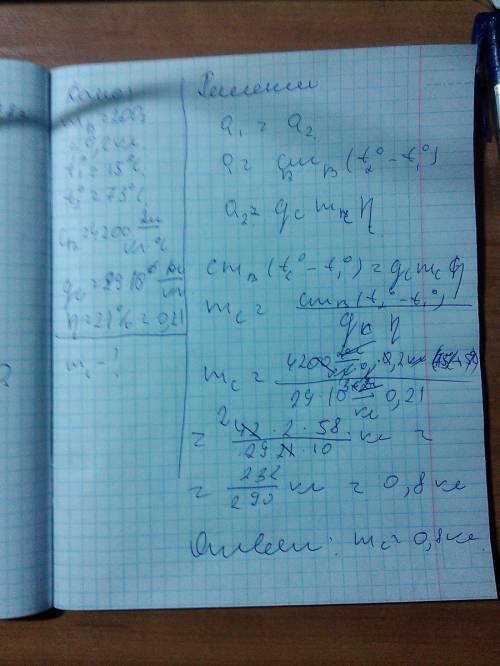 Дано:
m_в = 200г
= 0,2 кг
t₁° = 15°С
t₂° = 75°С
C_в = 4200 Дж/кг °С
q_с = 29·10⁶ Дж/кг
η = 21% = 0,21
m_с - ?
Решение
Q₁ = Q₂
Q = cm_в (t₂° - t₁°)
Q₂ = q_с m_с η
cm_в (t₂° - t₁°) = q_с m_с η
m_с = cm_в (t₂° - t₁°) / q_с η
m_с = 4200 · 0,2 кг / 29 · 10 0,21
= 42 · 2 · 58 / 29 21 · 10 кг =
= 232 / 290 кг = 0,8 кг
Ответ: m_с = 0,8 кг.